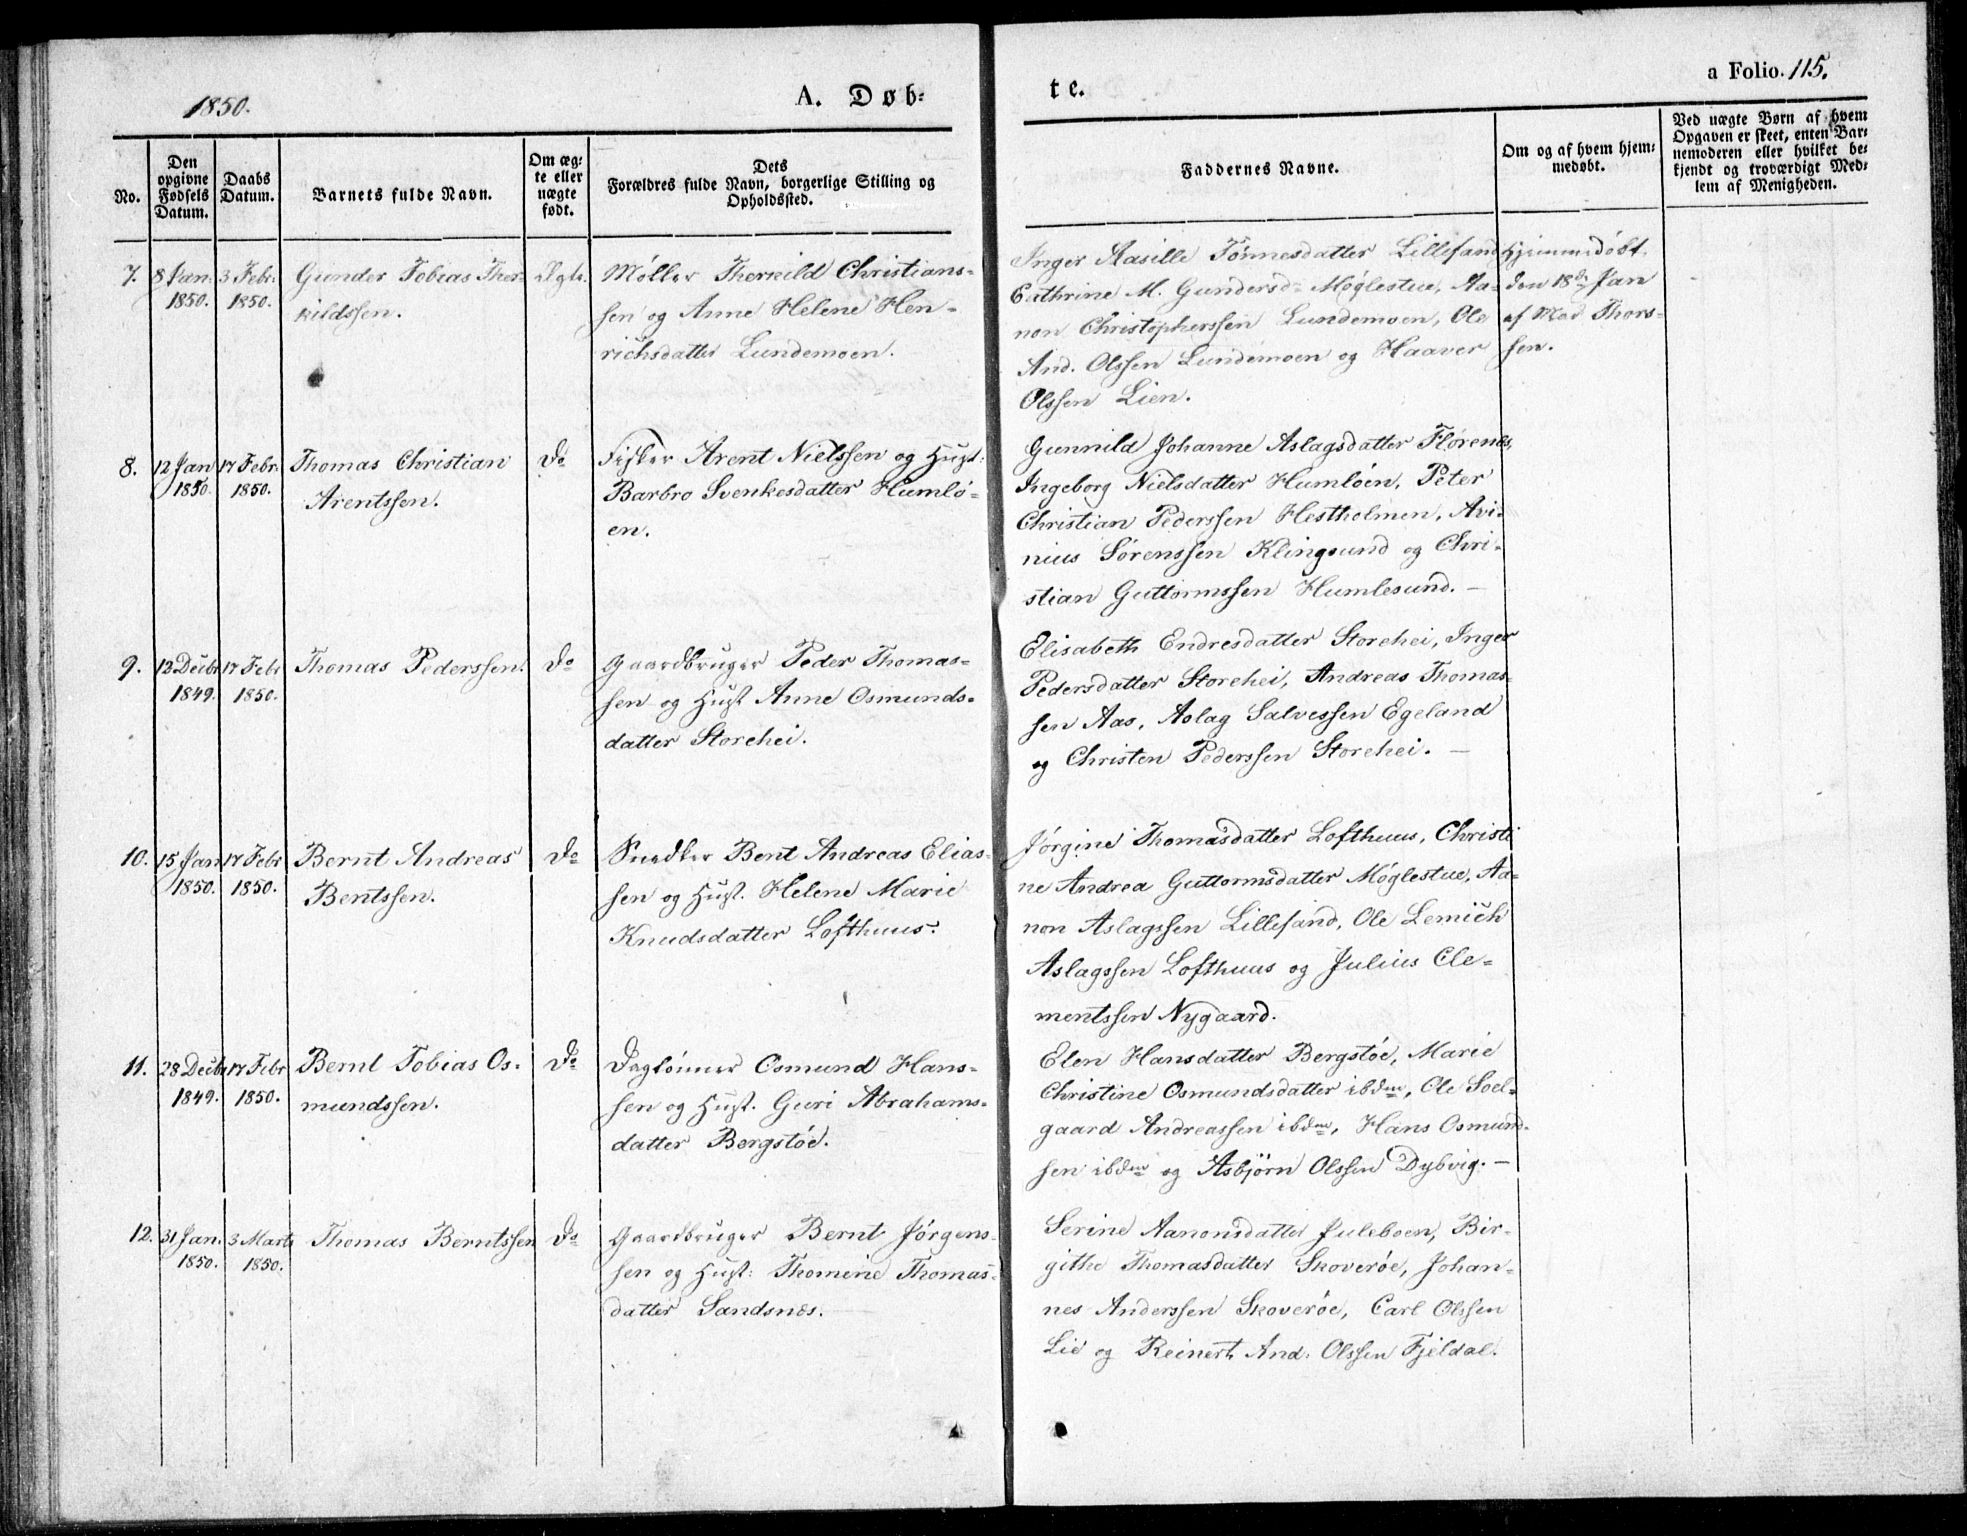 1850.
A. Døb-
te.
a Folio. 115.
No.
Den opgivne Fødsels Datum.
Daabs Datum.
Barnets fulde Navn.
Om ægte eller uægte født.
Dets
Forældres fulde Navn, borgerlige Stilling og
Opholdssted.
Faddernes Navne.
Om og af hvem hjem-
medøbt.
Ved uægte Børn af hvem
Opgaven er skeet, enten Bar-
nemoderen eller hvilket be-
kjendt og troværdigt Med-
lem af Menigheden.
7.
8 Jan.
1850.
3 Febr.
1850.
Gunder Tobias Ther-
kildssen.
Ægte.
Møller Therkild Christians-
sen og Anne Helene Hen-
richsdatter Lundemoen.
Inger Aasille Tönnesdatter Lillesand
Cathrine M. Gundersd- Møglestue, Aa-
non Christopherssen Lundemoen, Ole
And. Olssen Lundemoen og Haaver
Olssen Lien.
Hjemmedöbt
den 18de Jan
af Mad Thors-
sen.
8.
12 Jan
1850.
17 Febr.
1850.
Thomas Christian
Arentssen.
Do
Fisker Arent Nielssen og Hust:
Barbro Svenkesdatter Humlø-
en.
Gunnild Johanne Aslagsdatter Flørenes,
Ingeborg Nielsdatter Humløen, Peter
Christian Pederssen Hestholmen, Avi-
nius Sørenssen Klingsund og Chri-
stian Guttormssen Humlesund. —
9.
12 Decbr
1849.
17 Febr
1850.
Thomas Pederssen.
Do
Gaardbruger Peder Thomas-
sen og Hust Anne Osmunds-
datter Storehei.
Elisabeth Endresdatter Storehei, Inger
Pedersdatter Storehei, Andreas Thomas-
sen Aas, Aslag Salvessen Egeland
og Christen Pederssen Storehei. —
10.
15 Jan
1850.
17 Febr
1850.
Bernt Andreas
Bentssen.
Do
Snedker Bent Andreas Elias-
sen og Hust. Helene Marie
Knudsdatter Lofthuus.
Jørgine Thomasdatter Lofthuus, Christi
ne Andrea Guttormsdatter Møglestue, Aa-
non Aslagssen Lillesand, Ole Lemich
Aslagssen Lofthuus og Julius Cle-
mentssen Nygaard.
11.
28 Decbr
1849.
17 Febr
1850.
Bernt Tobias Os-
mundssen.
Do
Daglönner Osmund Hans-
sen og Hust. Guri Abrahams-
datter Bergstöe.
Elen Hansdatter Bergstöe, Marie
Christine Osmundsdatter ibdm, Ole Soel-
gaard Andreassen ibdm, Hans Osmund-
sen ibdm og Asbjørn Olssen Dybvig. —
12.
31 Jan.
1850.
3 Marts
1850.
Thomas Berntssen
Do
Gaardbruger Bernt Jørgens-
sen og Hust: Thomine Thomas-
datter Sandsnes.
Serine Aanonsdatter Juleboen, Bir-
githe Thomasdatter Skoverøe, Johan-
nes Anderssen Skoverøe, Carl Olssen
Lie og Reinert And. Olssen Fjeldal.